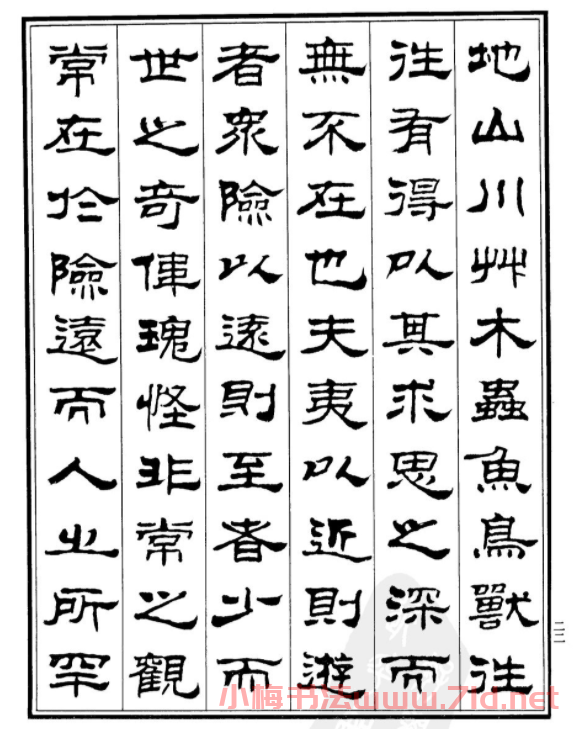 地山川艸木蟲魚鳥獸往
往有得以其求思之深而
無不在也夫夷以近則遊
者衆險以遠則至者少而
世之奇偉瑰怪非常之觀
常在於險遠而人之所罕
二二
小梅书法www.71d.net